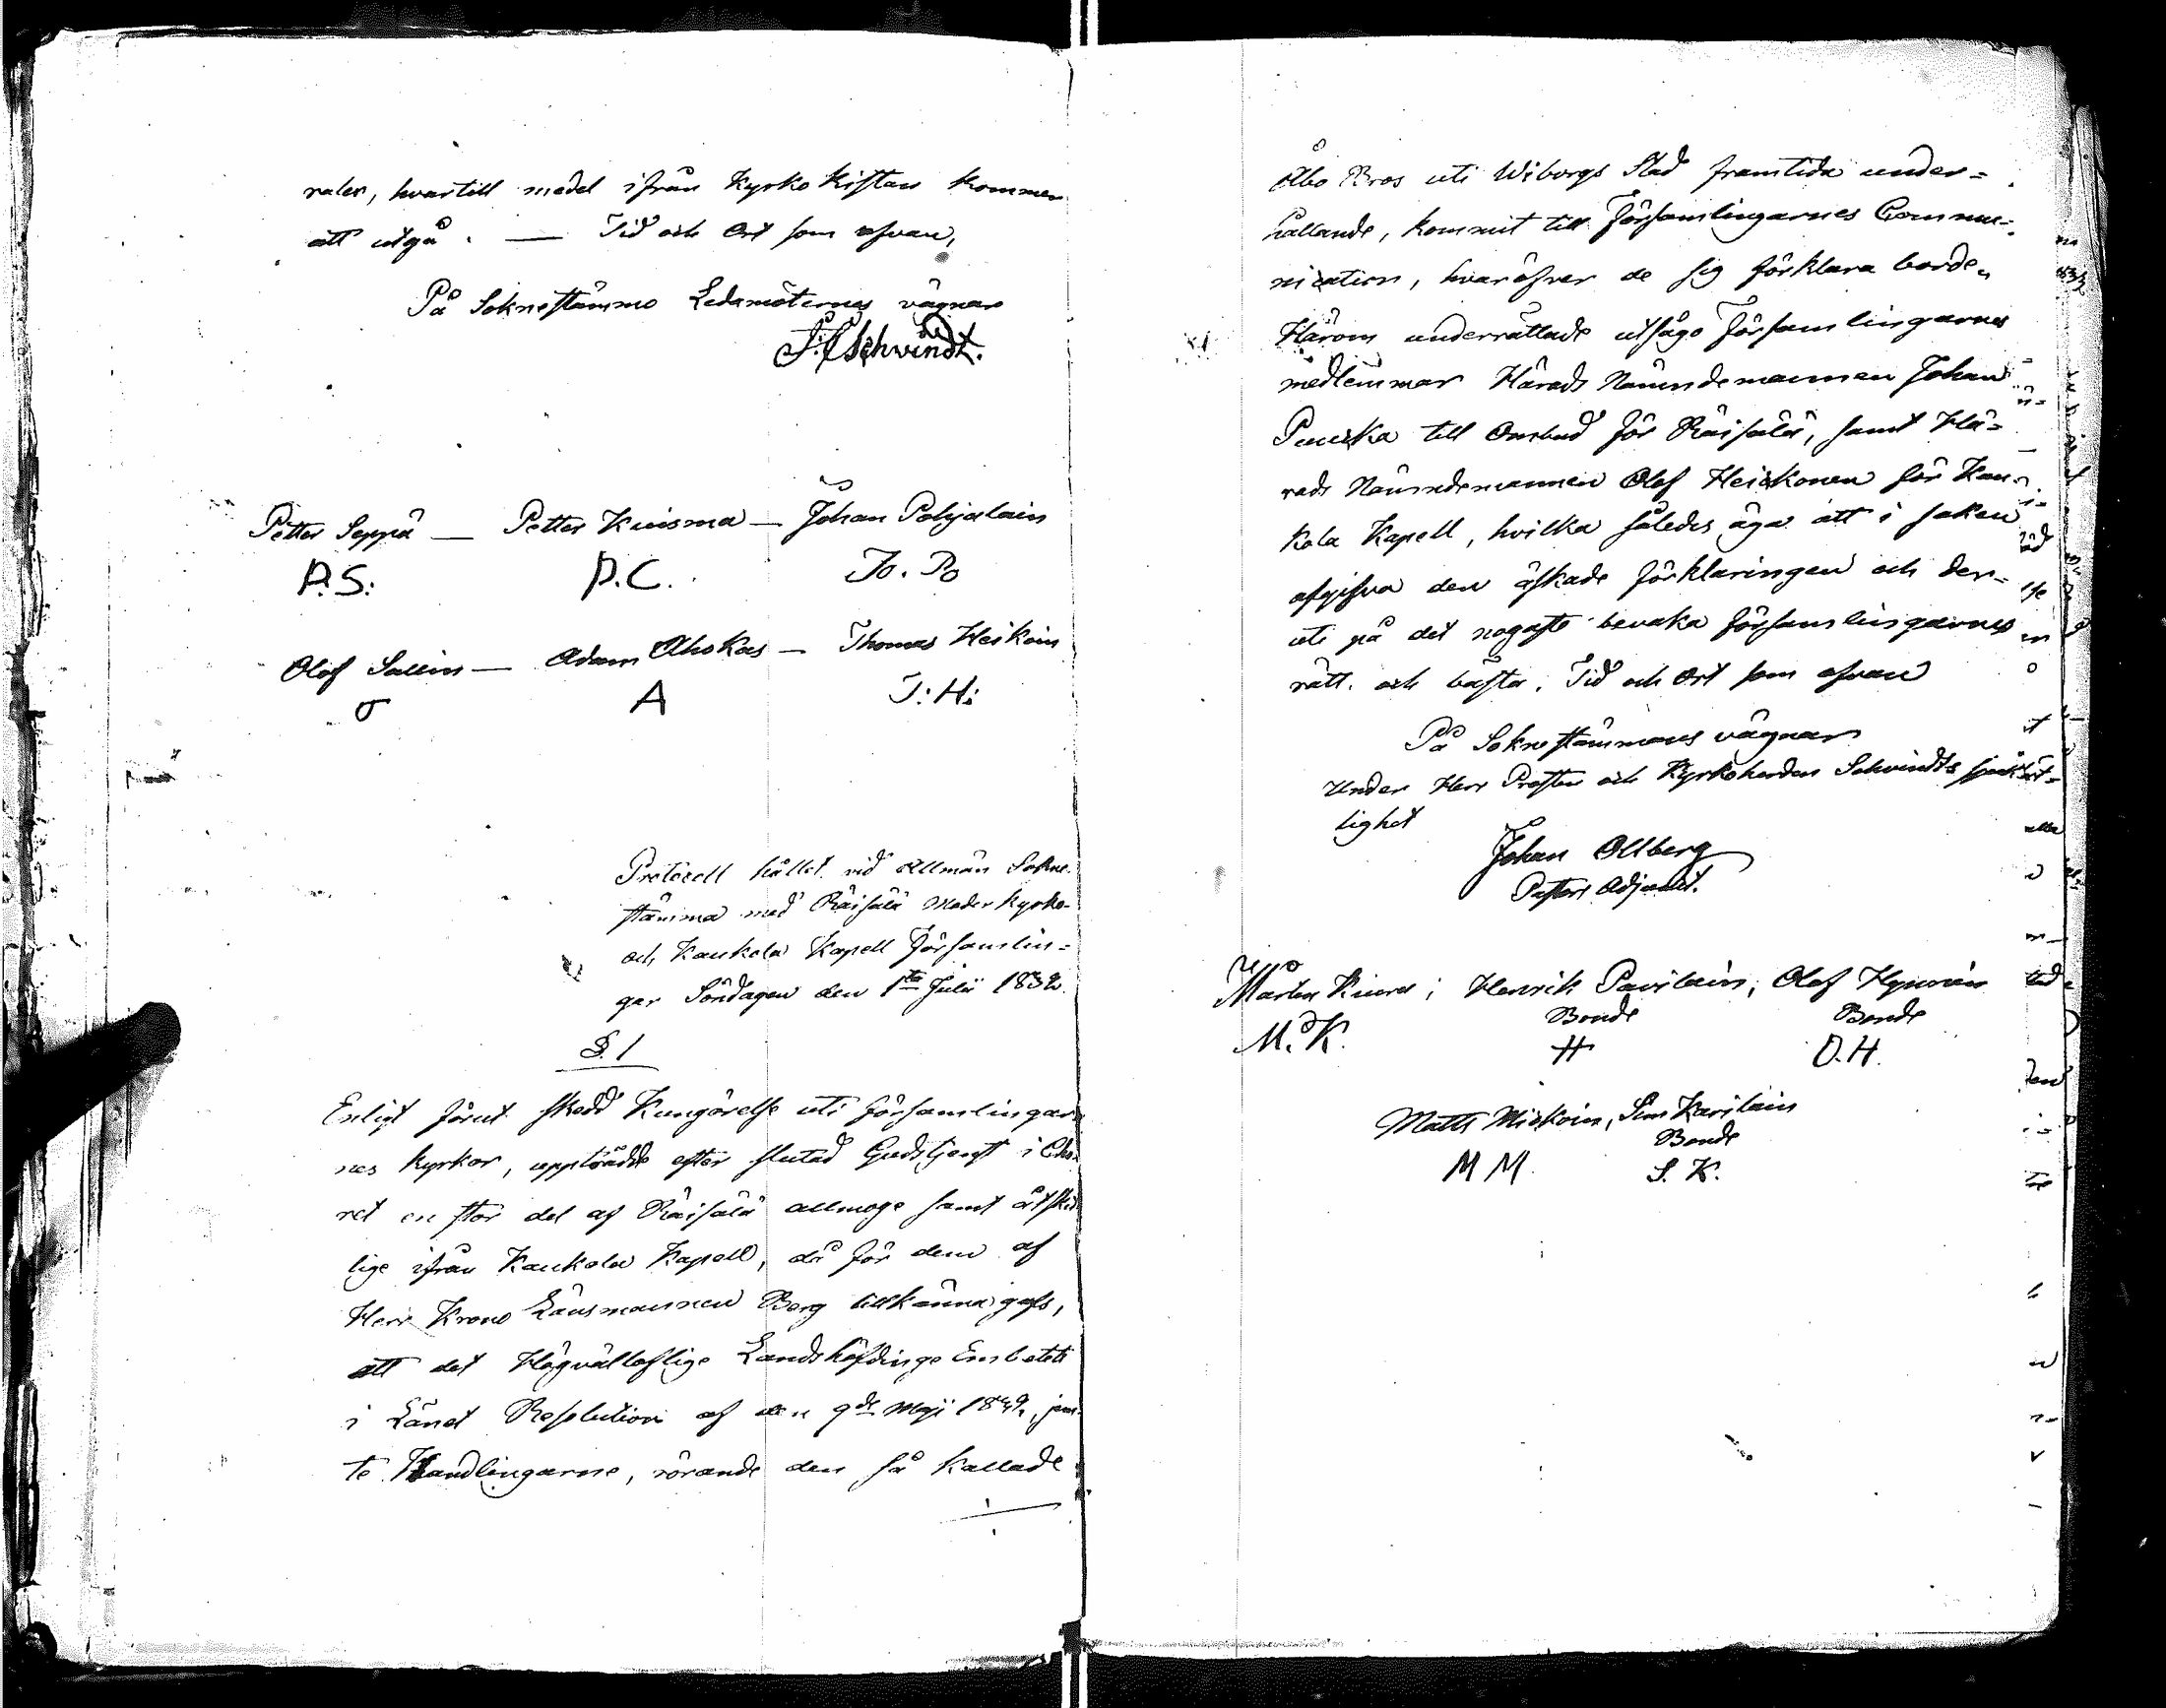 raler, hvartill medel ifrån Kyrko Kistan kommer
att utgå. — Tid och Ort som ofvan,
På Soknestämmo Ledamöternes vägnar
Schvindt.
Petter Seppä — Petter Kuisma — Johan Pohjalain
P.S. P.C. Jo. Po
Olof Sallin — Adam Ahokas — Thomas Heikoin
O A T: H:
Protocoll hållet vid Allmän Sokne-
stämma med Räisälä Moder kyrko-
och Kaukola Kapell Församlin=
gar Söndagen den 1ta Julii 1832.
§. 1
Enligt förut skedd Kungörelse uti Församlingar
nes kyrkor, uppträdde efter slutad Gudstjenst i Cho
ret en stor del af Räisälä allmoge samt åtskil
lige ifrån Kaukola Kapell, då för dem af
Herr Krono Länsmannen Berg tillkänna gafs,
att det Högvälloflige Landshöfdinge Embetets
i Länet Resolution af den 9de Maji, jem
te Handlingarne, rörande den så kallade
Åbo Bros uti Wiborgs Stad framtida under=
hållande, kommit till Församlingarnes Commu=
nication, hvaröfver de sig förklara borde.
Härom underrättade utsågo Församlingarnes
medlemmar Härads Nämndemannen Johan
Puuska till Ombud för Räisälä, samt Hä=
rads Nämndemannen Olof Heiskonen för Kau=
kola Kapell, hvilka således äga att i saken
afgifva den äskade förklaringen och der=
uti på det nogaste bevaka församlingarnes
rätt och bästa. Tid och Ort som ofvan
På Soknestämmans vägnar
Under Herr Prosten och Kyrkoherden Schvindts sjuk
lighet
Johan Ollberg
Pastors Adjunct.
Mårten; Henrik Pavilain; Olof
Bonde Bonde
M. K. H O. H.
Matts Miskoin, Sim Karilain
Bonde
M M. S. K.